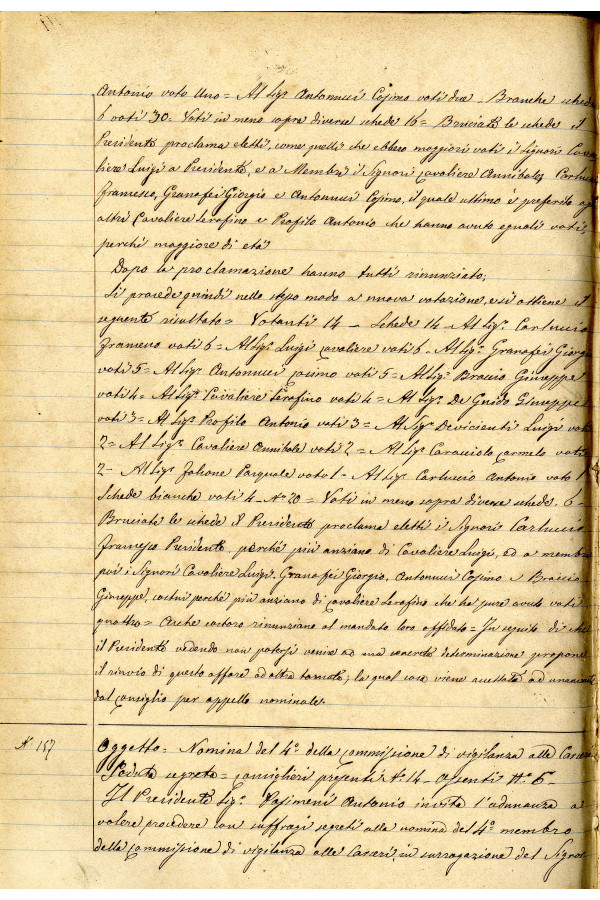 Antonio voto Uno = Al Sigr Antonucci Cosimo voti due - Bianche schede
6 voti 30 = Voti in meno sopra diverse schede 16 = Bruciate le schede il
Presidente proclama eletti, come quelli che ebbero maggiori voti i signori Cava
liere Luigi a Presidente, e a Membri i Signori Cavaliere Annibale, Carluccio
Francesco, Granafei Giorgio e Antonucci Cosimo, il quale ultimo è preferito agl'
altri Cavaliere Serafino e Profilo Antonio che hanno avuto eguali voti,
perchè maggiore di età
Dopo la proclamazione hanno tutti rinunziato,
Si procede quindi nello stesso modo a nuova votazione, e si ottiene il
seguente risultato = Votanti 14 - Schede 14 - Al Sigr Carluccio
Francesco voti 6 = Al Sigr Luigi Cavaliere voti 6 - Al Sigr Granafei Giorgio
voti 5 = Al Sigr Antonucci Cosimo voti 5 = Al Sigr Braccio Giuseppe
voti 4 = Al Sigr Cavaliere Serafino voti 4 = Al Sigr De Guido Giuseppe
voti 3 = Al Sigr Profilo Antonio voti 3 = Al Sigr Devicienti Luigi voti
2 = Al Sigr Cavaliere Annibale voti 2 = Al Sigr Caracciolo Carmelo voti
2 - Al Sigr Falcone Pasquale voto 1 - Al Sigr Carluccio Antonio voto 1
Schede bianche voti 4 - No 20 = Voti in meno sopra diverse schede. 6 -
Bruciate le schede il Presidente proclama eletti i Signori Carluccio
Francesco Presidente perchè più anziano di Cavaliere Luigi, ed a membri
poi i Signori Cavaliere Luigi, Granafei Giorgio, Antonucci Cosimo e Braccio
Giuseppe, costui perchè più anziano di Cavaliere Serafino che ha pure avuto voti
quattro = Anche costoro rinunziano al mandato loro affidato = In seguito di che
il Presidente vedendo non potersi venire ad una concreta determinazione propone
il rinvio di questo affare ad altra tornata; la qual cosa viene accettata ad unanimità
dal Consiglio per appello nominale.
N. 157
Oggetto = Nomina del 4o della Commissione di vigilanza alle Carceri
Seduta segreta = Consiglieri presenti No 14 - assenti No 6 -
Il Presidente Sigr Pasimeni Antonio invita l'adunanza a
volere procedere con suffragi segreti alla nomina del 4o membro
della Commissione di vigilanza alle Carceri, in surrogazione del Signor